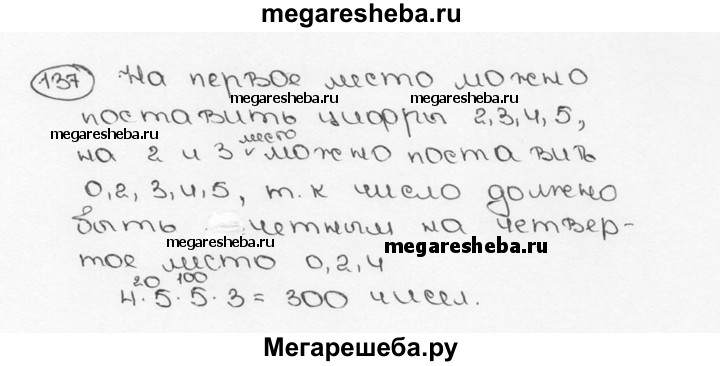 megaresheba.ru
137 На первое место можно
megaresheba.ru megaresheba.ru
поставить цифры 2,3,4,5,
megaresheba.ru
место
на 2 и 3 ✓ можно поставить
0,2,3,4,5, т.к число должно
быть четным на четвер-
megaresheba.ru megaresheba.ru
тое место 0,2,4
20 100
4·5·5·3 = 300 чисел.
Мегарешеба.ру